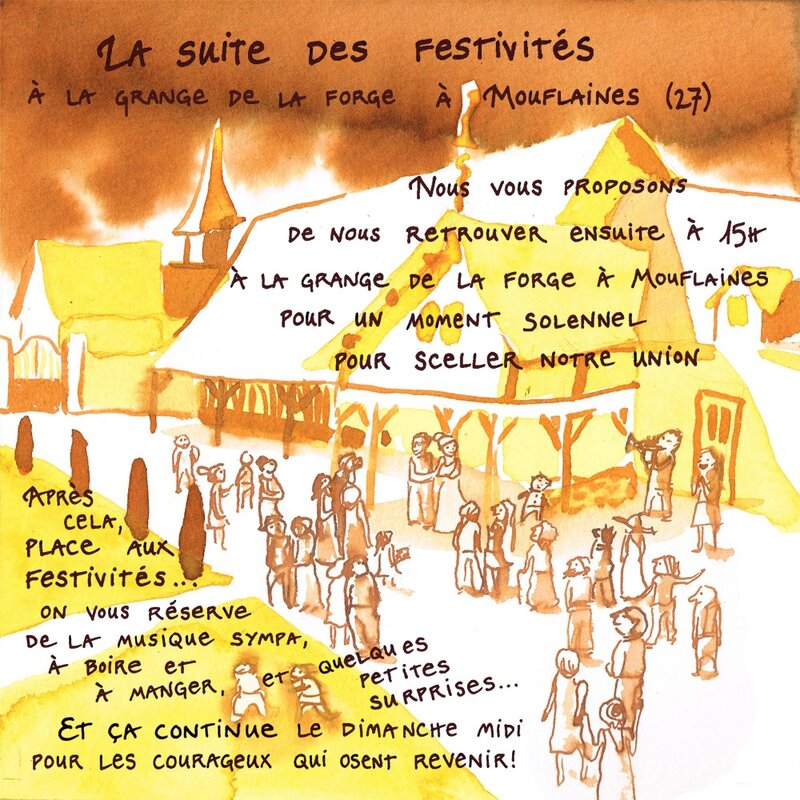 La suite des festivités
à la grange de la forge à Mouflaines (27)
Nous vous proposons
de nous retrouver ensuite à 15h
à la grange de la forge à Mouflaines
pour un moment solennel
pour sceller notre union
Après
cela,
place aux
festivités...
on vous réserve
de la musique sympa,
à boire et
à manger, et quelques
petites
surprises...
Et ça continue le dimanche midi
pour les courageux qui osent revenir!